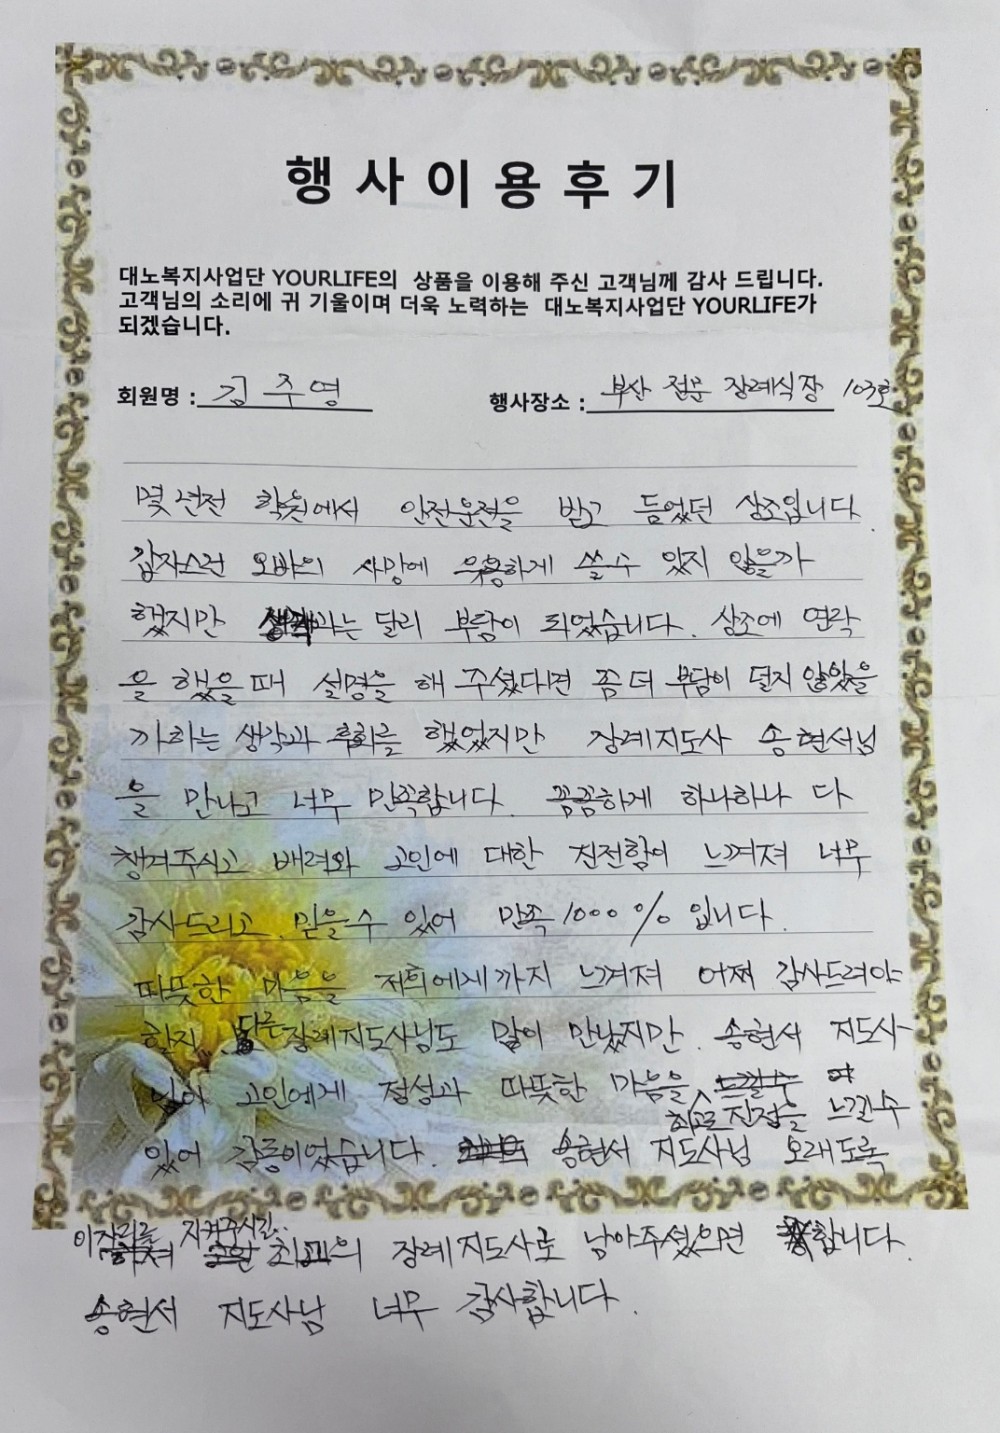 행사이용후기
대노복지사업단 YOURLIFE의 상품을 이용해 주신 고객님께 감사 드립니다.
고객님의 소리에 귀 기울이며 더욱 노력하는 대노복지사업단 YOURLIFE가
되겠습니다.
회원명 : 김주영
행사장소 : 부산 전문 장례식장 103호
몇 년전 학원에서 안전운전을 받고 들었던 상조입니다.
갑자스런 오빠의 사망에 유용하게 쓸수 있지 않을까
했지만 생각과는 달리 부담이 되었습니다. 상조에 연락
을 했을 때 설명을 해 주셨다면 좀 더 부담이 덜지 않았을
까하는 생각과 후회를 했었지만 장례지도사 송현서님
을 만나고 너무 만족합니다. 꼼꼼하게 하나하나 다
챙겨주시고 배려와 고인에 대한 친전함이 느껴져 너무
감사드리고 믿을수 있어 만족 1000%입니다.
따뜻한 마음을 저희에게까지 느껴져 어찌 감사드려야
할지. 다른 장례지도사님도 많이 만났지만. 송현서 지도사
님이 고인에게 정성과 따뜻한 마음을
최고로 진정을 느낄수
있어 감동이었습니다. 송현서 지도사님 오래도록
이자리를 지켜주시길..
최고의 장례지도사로 남아주셨으면 합니다.
송현서 지도사님 너무 감사합니다.